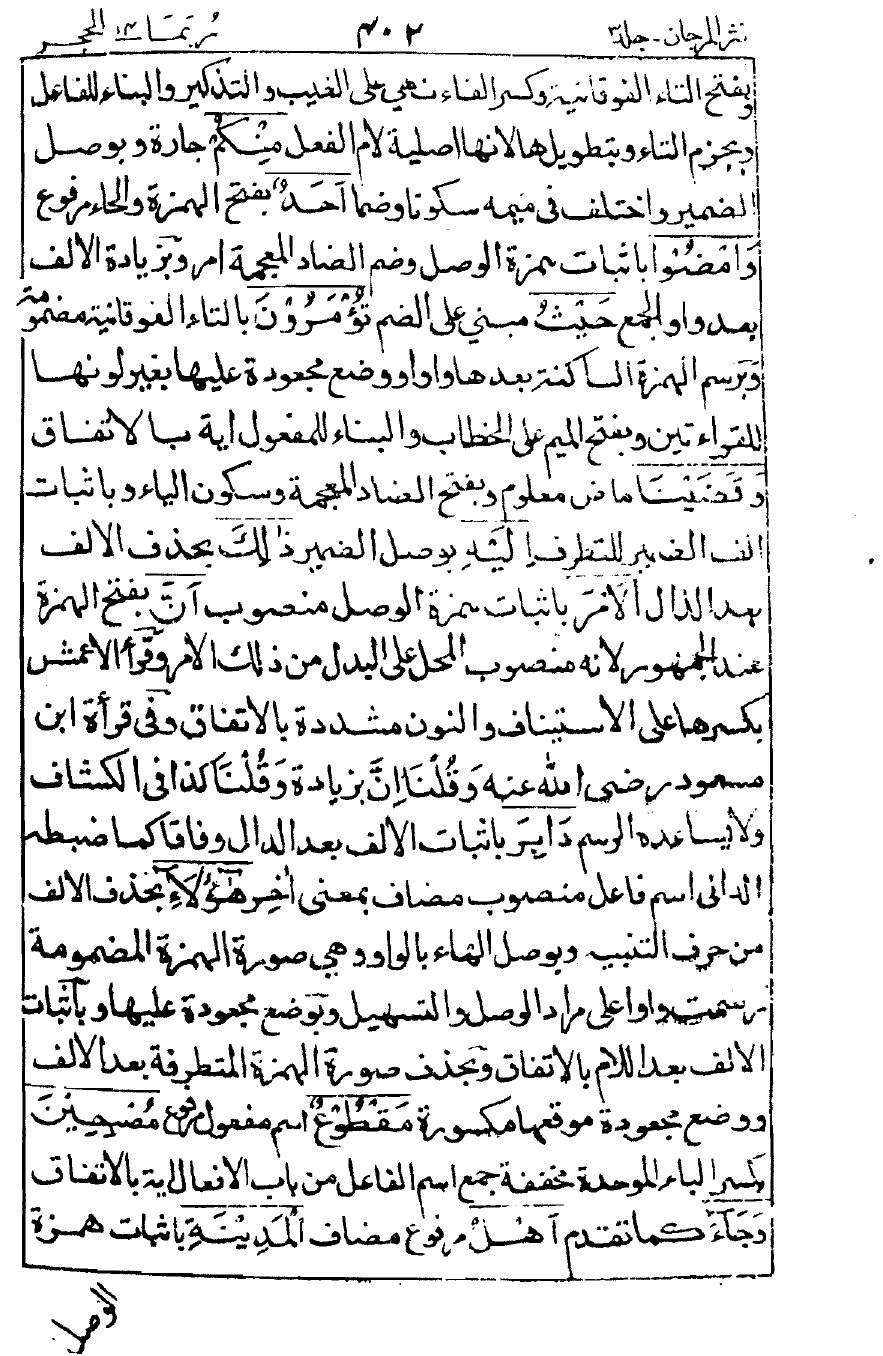 نثر المرجان - جلد٣ ٤٠٢ ربما ١٤ الحجر
وبفتح التاء الفوقانية وكسر الفاء ث هي على الغيب والتذكير والبناء للفاعل
وبجزم التاء وبتطويلها لانها اصلية لام الفعل مِنْكُمْ جارة وبوصل
الضمير واختلف في ميمه سكونا وضما اَحَدٌ بفتح الهمزة والحاء مرفوع
وَامْضُوْا باثبات همزة الوصل وضم الضاد المعجمة امر وبزيادة الالف
بعد واو الجمع حَيْثُ مبني على الضم تُؤْمَرُوْنَ بالتاء الفوقانية مضمومة
وبرسم الهمزة الساكنة بعدها واوا ووضع مجعودة عليها بغير لونها
للقراءتين وبفتح الميم على الخطاب والبناء للمفعول اية بالاتفاق
وقَضَيْنَا ماض معلوم وبفتح الضاد المعجمة وسكون الياء وباثبات
الف الضمير للتطرف اِلَيْهِ بوصل الضمير ذٰلِكَ بحذف الالف
بعد الذال اَلْاَمْرَ باثبات همزة الوصل منصوب اَنَّ بفتح الهمزة
عند الجمهور لانه منصوب المحل على البدل من ذلك الامر وقرأ الاعمش
بكسرها على الاستيناف والنون مشددة بالاتفاق وفي قرأة ابن
مسعود رضي الله عنه وَقُلْنَا اِنَّ بزيادة وَقُلْنَا كذا في الكشاف
ولا يساعده الرسم دَابِرَ باثبات الالف بعد الدال وفاقا كما ضبطه
الداني اسم فاعل منصوب مضاف بمعنى اٰخِر هٰٓؤُلَآءِ بحذف الالف
من حرف التنبيه وبوصل الهاء بالواو وهي صورة الهمزة المضمومة
رسمت واوا على مراد الوصل والتسهيل وبوضع مجعودة عليها وباثبات
الالف بعد اللام بالاتفاق وبحذف صورة الهمزة المتطرفة بعد الالف
ووضع مجعودة موقعها مكسورة مَقْطُوْعٌ اسم مفعول مرفوع مُصْبِحِيْنَ
بكسر الباء الموحدة مخففة جمع اسم الفاعل من باب الافعال اية بالاتفاق
وَجَآءَ كما تقدم اَهْلُ مرفوع مضاف الْمَدِيْنَةِ باثبات همزة
الوصل